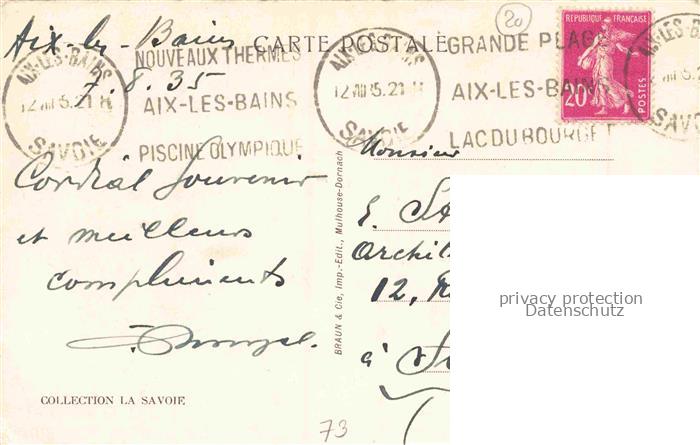 Aix-les-Bains
7.8.35
CARTE POSTALE
20
AIX-LES-BAINS
12 VIII 35.21 H
SAVOIE
NOUVEAUX THERMES
AIX-LES-BAINS
PISCINE OLYMPIQUE
AIX-LES-BAINS
12 VIII 35.21 H
SAVOIE
GRANDE PLAGE
AIX-LES-BAINS
LAC DU BOURGET
REPUBLIQUE FRANÇAISE
20c
POSTES
Cordial Souvenir
et meilleurs
compliments
Monsieur
E. SA
Archit
12, R
à
BRAUN & Cie, Imp.-Edit., Mulhouse-Dornach
COLLECTION LA SAVOIE
73
privacy protection
Datenschutz